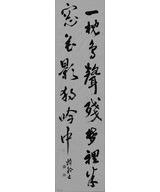 一枕鳥聲殘夢裡半
窓花影独吟中